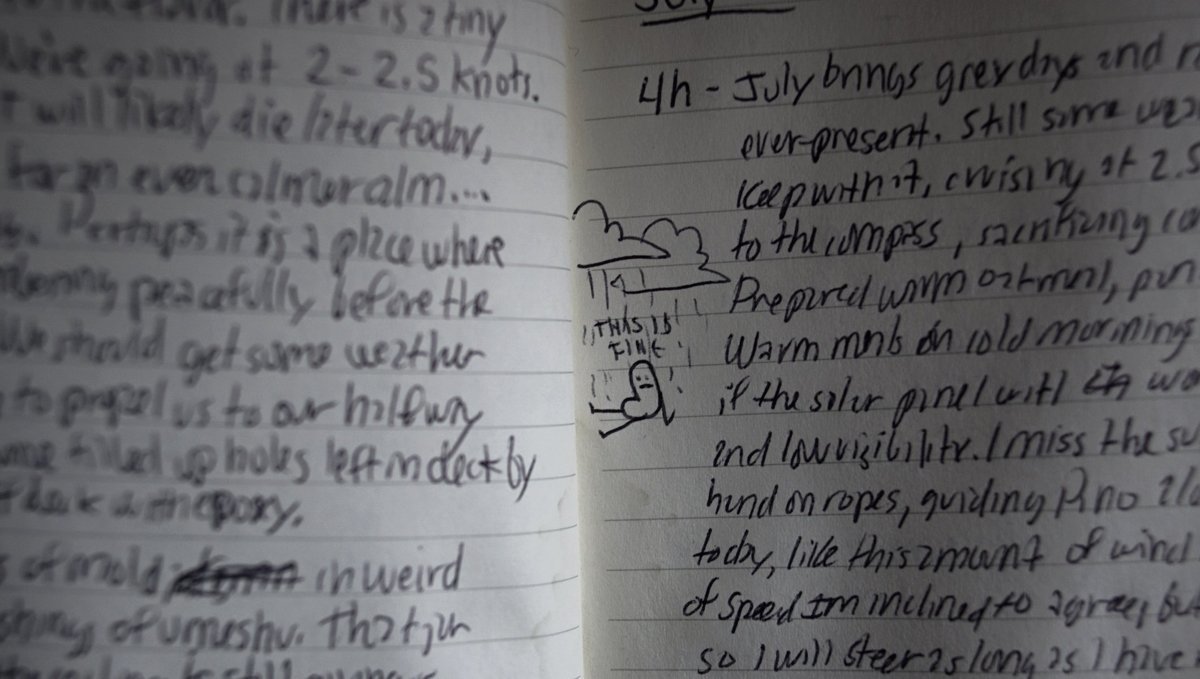 There is a tiny
We're going at 2-2.5 knots.
t will likely die later today,
for an even calmer calm....
Perhaps it is a place where
peacefully before the
We should get some weather
to propel us to our halfway
filled up holes left in deck by
with epoxy.
of mold in weird
of umeshu. That jar
July
4h - July brings grey days and
ever-present. Still some
keep with it, cruising at 2.5
to the compass, sacrificing
Prepared warm oatmeal,
Warm meals on cold morning
if the solar panel will
and low visibility. I miss the
hand on ropes, guiding Pino
today, like this amount of wind
of speed Im inclined to agree, but
so I will steer as long as I have
THIS IS
FINE